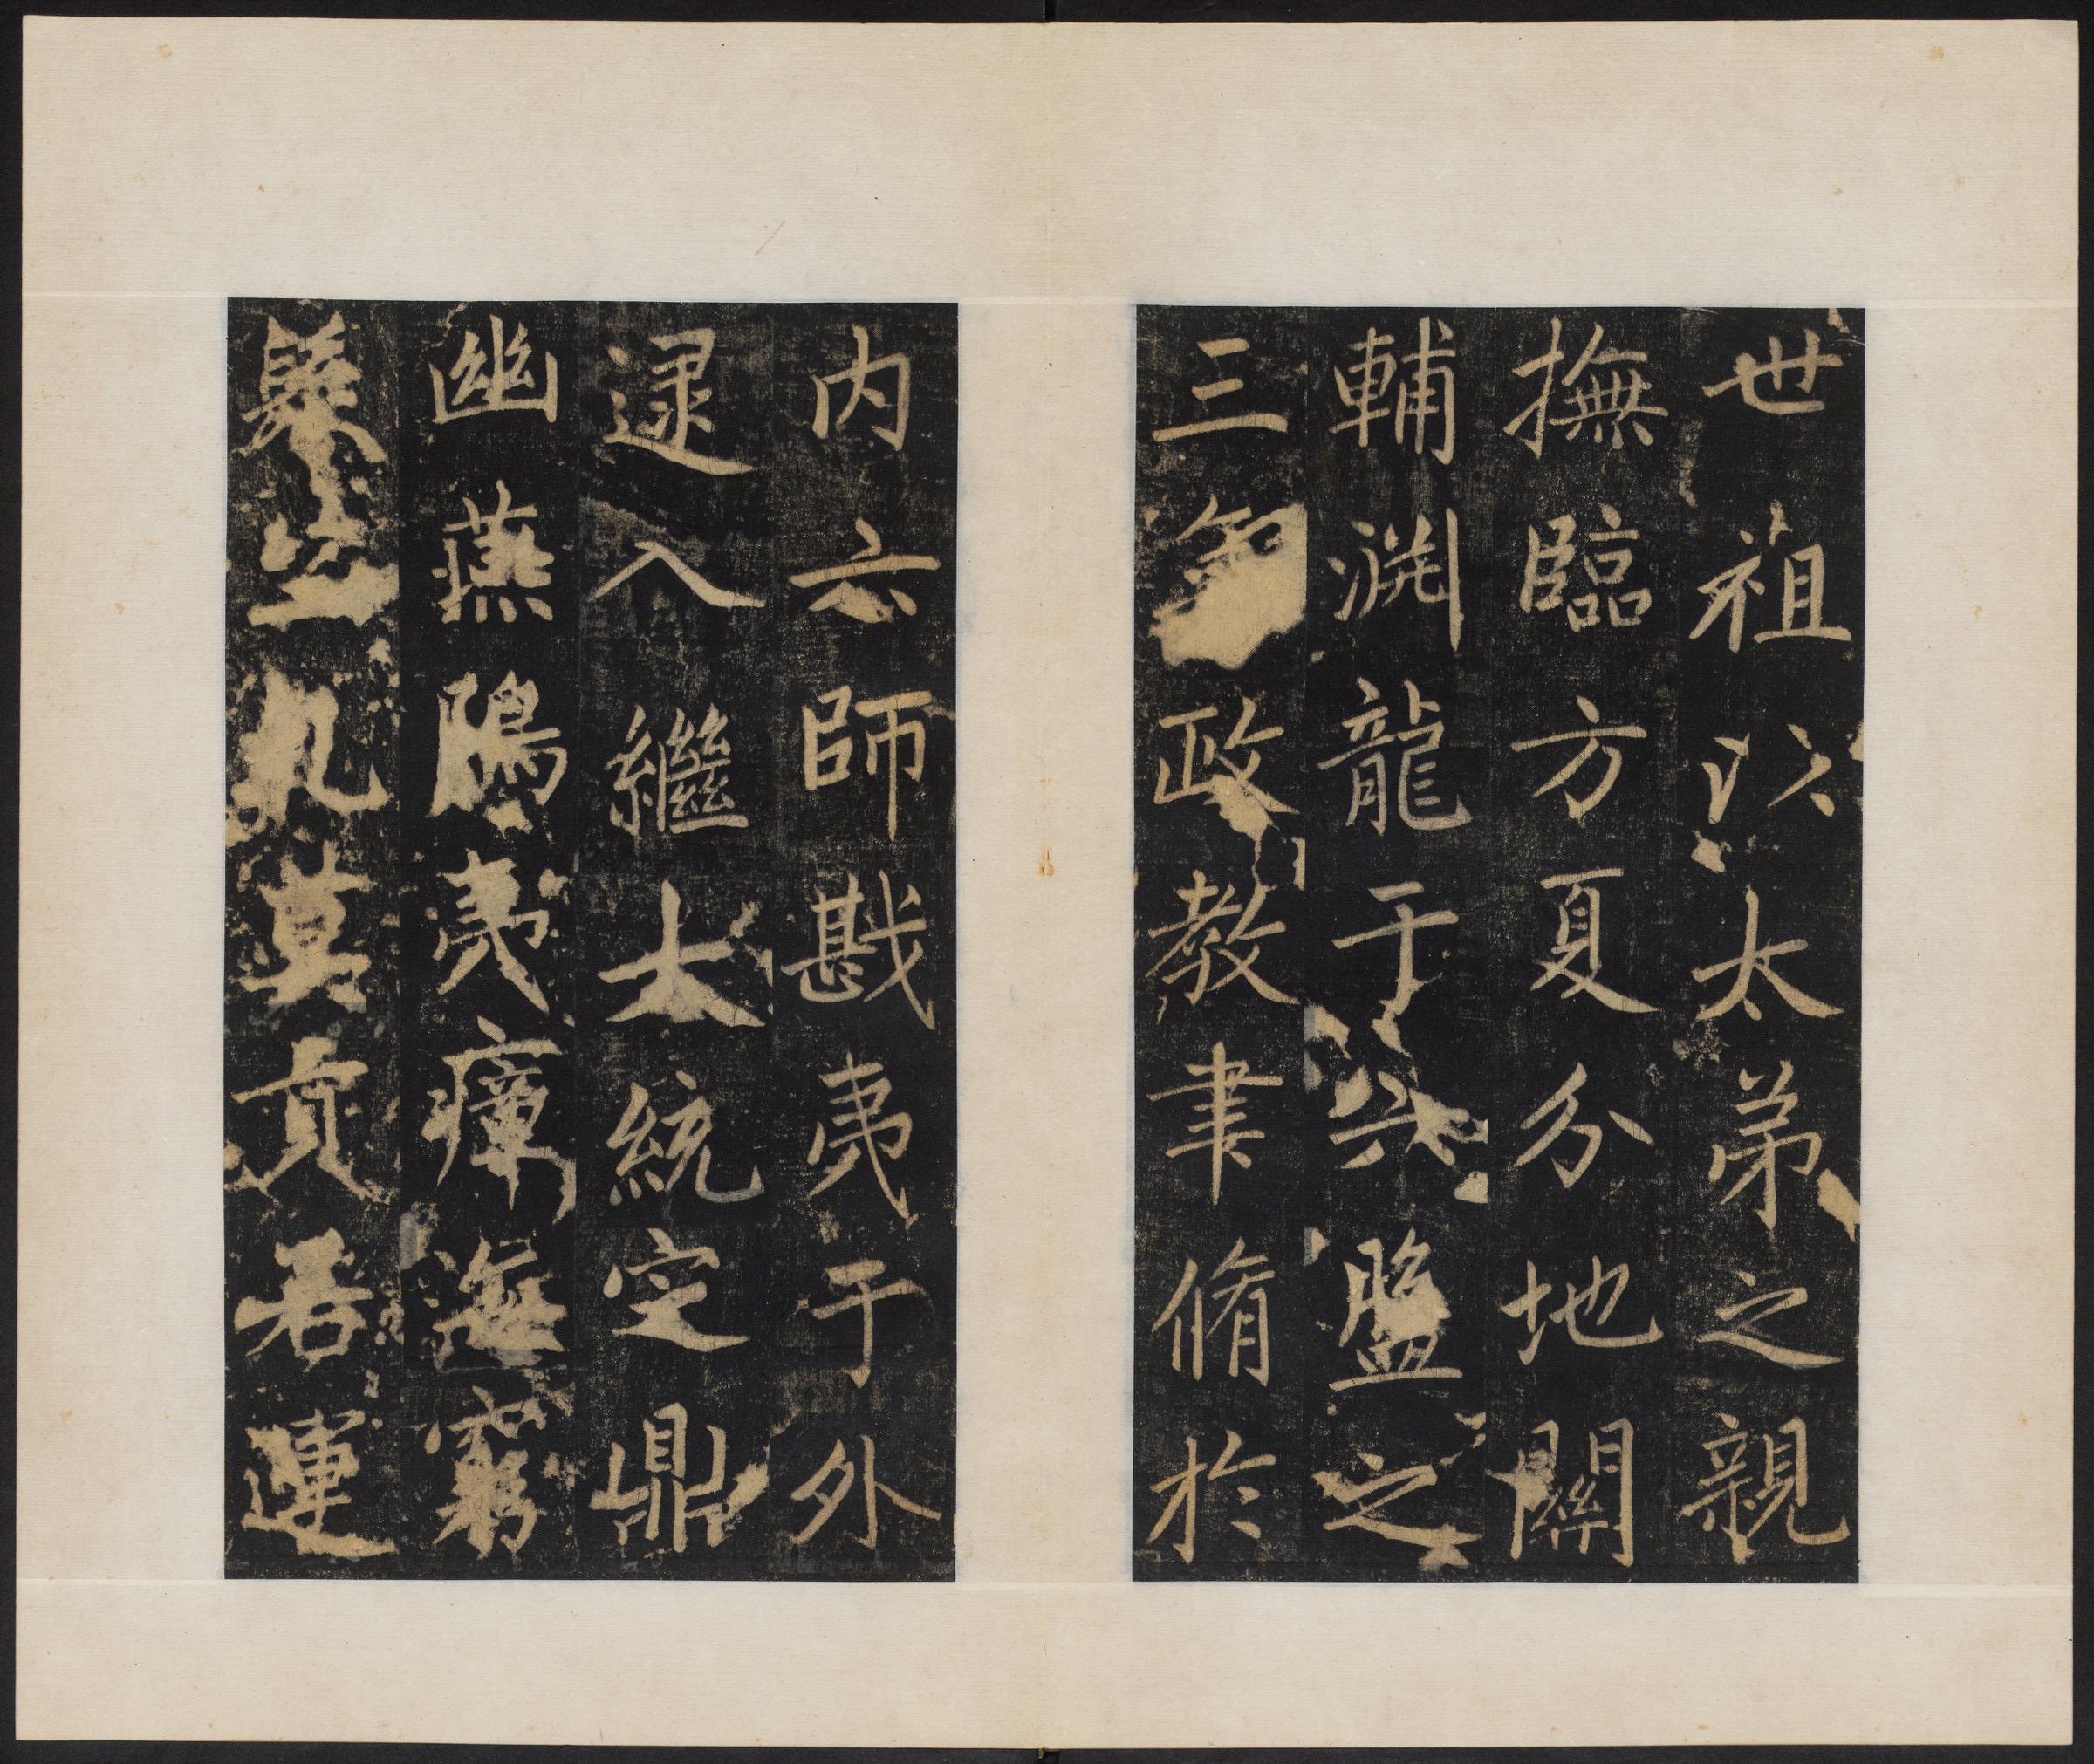 世祖以太弟之親
撫臨方夏分地關
輔渕龍于六盤之
三政教聿脩於
内六師戡夷于外
逮入繼大統定鼎
幽燕夷瘴海窮
莫貢若運